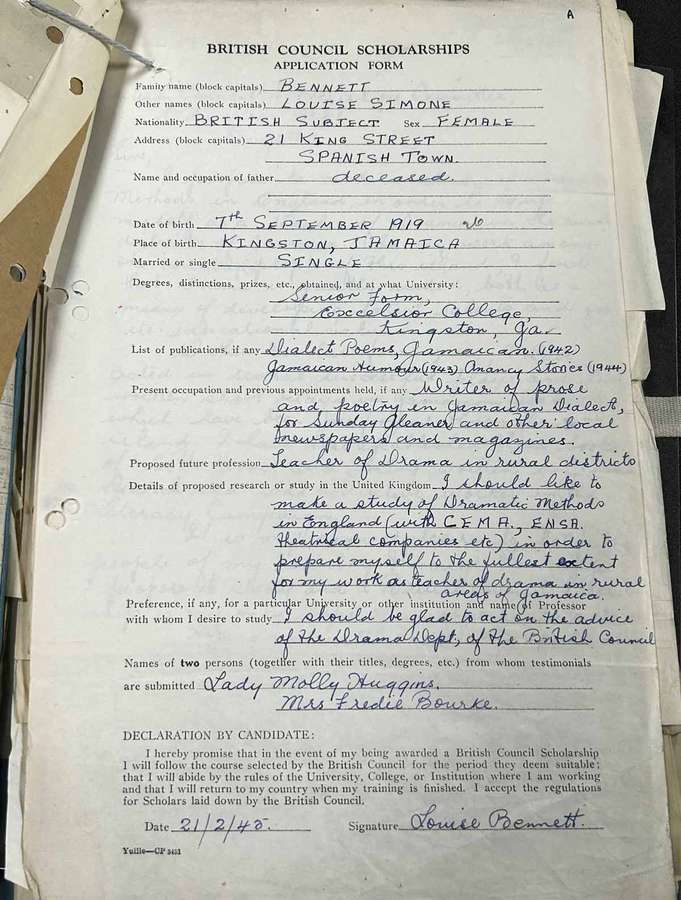 A
BRITISH COUNCIL SCHOLARSHIPS
APPLICATION FORM
Family name (block capitals) BENNETT
Other names (block capitals) LOUISE SIMONE
Nationality BRITISH SUBJECT Sex FEMALE
Address (block capitals) 21 KING STREET
SPANISH TOWN.
Name and occupation of father deceased.
Date of birth 7th SEPTEMBER 1919
Place of birth KINGSTON, JAMAICA
Married or single SINGLE
Degrees, distinctions, prizes, etc., obtained, and at what University:
Senior Form,
Excelsior College,
Kingston, Ja.
List of publications, if any Dialect Poems, Jamaican. (1942)
Jamaican Humour (1943) Anancy Stories (1944)
Present occupation and previous appointments held, if any Writer of prose
and poetry in Jamaican Dialect,
for Sunday Gleaner and other local
newspapers and magazines.
Proposed future profession Teacher of Drama in rural districts
Details of proposed research or study in the United Kingdom I should like to
make a study of Dramatic Methods
in England (with C.E.M.A., ENSA.
theatrical companies etc) in order to
prepare myself to the fullest extent
for my work as teacher of drama in rural
areas of Jamaica.
Preference, if any, for a particular University or other institution and name of Professor
with whom I desire to study I should be glad to act on the advice
of the Drama Dept, of the British Council
Names of two persons (together with their titles, degrees, etc.) from whom testimonials
are submitted Lady Molly Huggins.
Mrs Fredie Bourke.
DECLARATION BY CANDIDATE:
I hereby promise that in the event of my being awarded a British Council Scholarship
I will follow the course selected by the British Council for the period they deem suitable;
that I will abide by the rules of the University, College, or Institution where I am working
and that I will return to my country when my training is finished. I accept the regulations
for Scholars laid down by the British Council.
Date 21/2/45. Signature Louise Bennett.